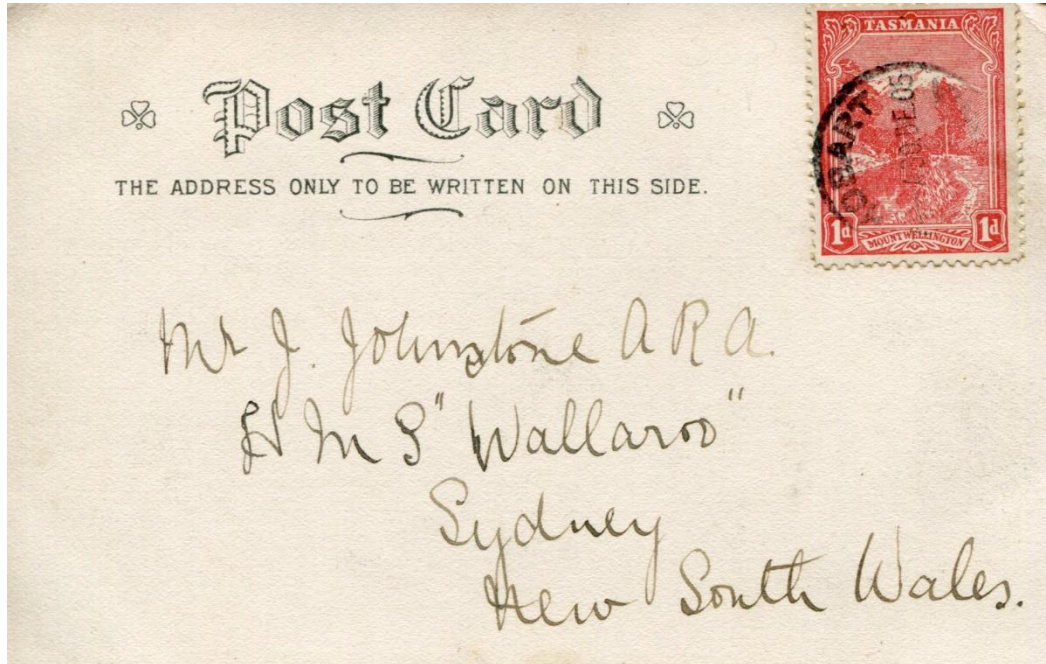 Post Card
THE ADDRESS ONLY TO BE WRITTEN ON THIS SIDE.
TASMANIA
HOBART
DE 05
1d
MOUNT WELLINGTON
1d
Mr J. Johnstone A R A.
H M S "Wallaroo"
Sydney
New South Wales.